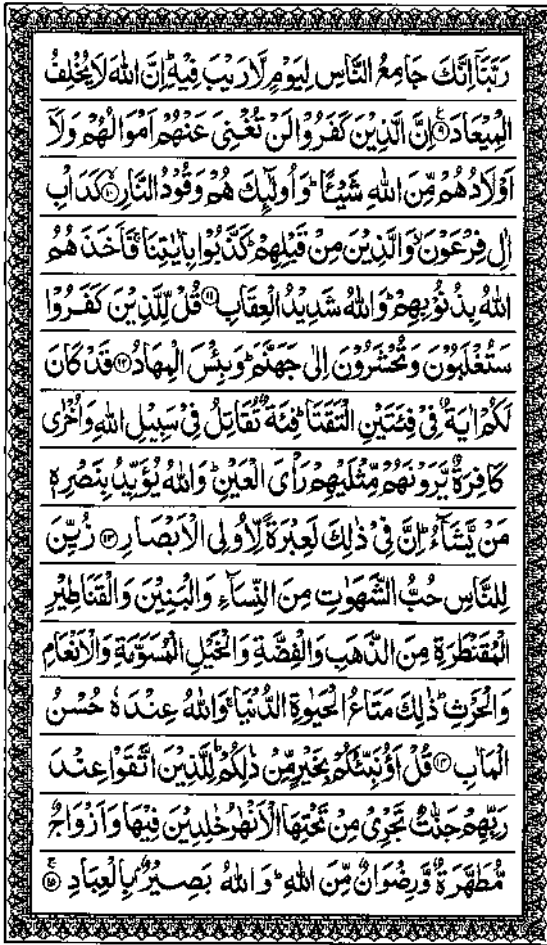 رَبَّنَآ اِنَّكَ جَامِعُ النَّاسِ لِيَوْمٍ لَّا رَيْبَ فِيْهِ ؕ اِنَّ اللّٰهَ لَا يُخْلِفُ
الْمِيْعَادَ ﴿۹﴾ اِنَّ الَّذِيْنَ كَفَرُوْا لَنْ تُغْنِىَ عَنْهُمْ اَمْوَالُهُمْ وَلَآ
اَوْلَادُهُمْ مِّنَ اللّٰهِ شَيْـًٔا ؕ وَاُولٰٓئِكَ هُمْ وَقُوْدُ النَّارِ ﴿۱۰﴾ كَدَاْبِ
اٰلِ فِرْعَوْنَ ۙ وَالَّذِيْنَ مِنْ قَبْلِهِمْ ؕ كَذَّبُوْا بِاٰيٰتِنَا ۚ فَاَخَذَهُمُ
اللّٰهُ بِذُنُوْبِهِمْ ؕ وَاللّٰهُ شَدِيْدُ الْعِقَابِ ﴿۱۱﴾ قُلْ لِّلَّذِيْنَ كَفَرُوْا
سَتُغْلَبُوْنَ وَتُحْشَرُوْنَ اِلٰى جَهَنَّمَ ؕ وَبِئْسَ الْمِهَادُ ﴿۱۲﴾ قَدْ كَانَ
لَكُمْ اٰيَةٌ فِىْ فِئَتَيْنِ الْتَقَتَا ؕ فِئَةٌ تُقَاتِلُ فِىْ سَبِيْلِ اللّٰهِ وَاُخْرٰى
كَافِرَةٌ يَّرَوْنَهُمْ مِّثْلَيْهِمْ رَاْىَ الْعَيْنِ ؕ وَاللّٰهُ يُؤَيِّدُ بِنَصْرِهٖ
مَنْ يَّشَآءُ ؕ اِنَّ فِىْ ذٰلِكَ لَعِبْرَةً لِّاُولِى الْاَبْصَارِ ﴿۱۳﴾ زُيِّنَ
لِلنَّاسِ حُبُّ الشَّهَوٰتِ مِنَ النِّسَآءِ وَالْبَنِيْنَ وَالْقَنَاطِيْرِ
الْمُقَنْطَرَةِ مِنَ الذَّهَبِ وَالْفِضَّةِ وَالْخَيْلِ الْمُسَوَّمَةِ وَالْاَنْعَامِ
وَالْحَرْثِ ؕ ذٰلِكَ مَتَاعُ الْحَيٰوةِ الدُّنْيَا ۚ وَاللّٰهُ عِنْدَهٗ حُسْنُ
الْمَاٰبِ ﴿۱۴﴾ قُلْ اَؤُنَبِّئُكُمْ بِخَيْرٍ مِّنْ ذٰلِكُمْ ؕ لِلَّذِيْنَ اتَّقَوْا عِنْدَ
رَبِّهِمْ جَنّٰتٌ تَجْرِىْ مِنْ تَحْتِهَا الْاَنْهٰرُ خٰلِدِيْنَ فِيْهَا وَاَزْوَاجٌ
مُّطَهَّرَةٌ وَّرِضْوَانٌ مِّنَ اللّٰهِ ؕ وَاللّٰهُ بَصِيْرٌۢ بِالْعِبَادِ ﴿۱۵﴾